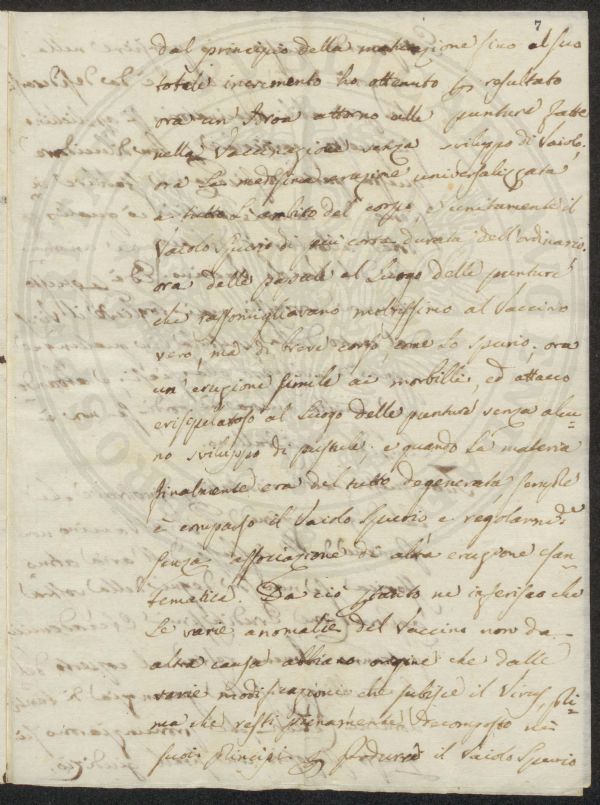 7
dal principio della maturazione sino al suo
totale incremento ho ottenuto per resultato
ora un' Areola attorno alle punture fatte
nella Vaccinazione senza sviluppo di Vaiolo.
ora la medesima eruzione universalizzata
a tutto l'ambito del corpo, e unitamente il
Vaiolo Spurio di più corta durata dell'ordinario.
ora delle pustule al luogo delle punture
che rassomigliavano moltissimo al Vaccino
vero, ma di breve corso, come lo Spurio. ora
un' eruzione simile ai morbilli, ed attacco
erisipelatoso al luogo delle punture senza alcu-
no sviluppo di pustule. e quando la materia
finalmente era del tutto degenerata sempre
è comparso il Vaiolo Spurio e regolarmte
senza associazione di altra eruzione esan-
tematica. Da ciò ne inferisco che
le varie anomalie del Vaccino non da
altra causa abbiano origine che dalle
varie modificazioni che subisce il Virus, pri-
ma che resti pienamente decomposto nei
suoi principj per produrre il Vaiolo Spurio